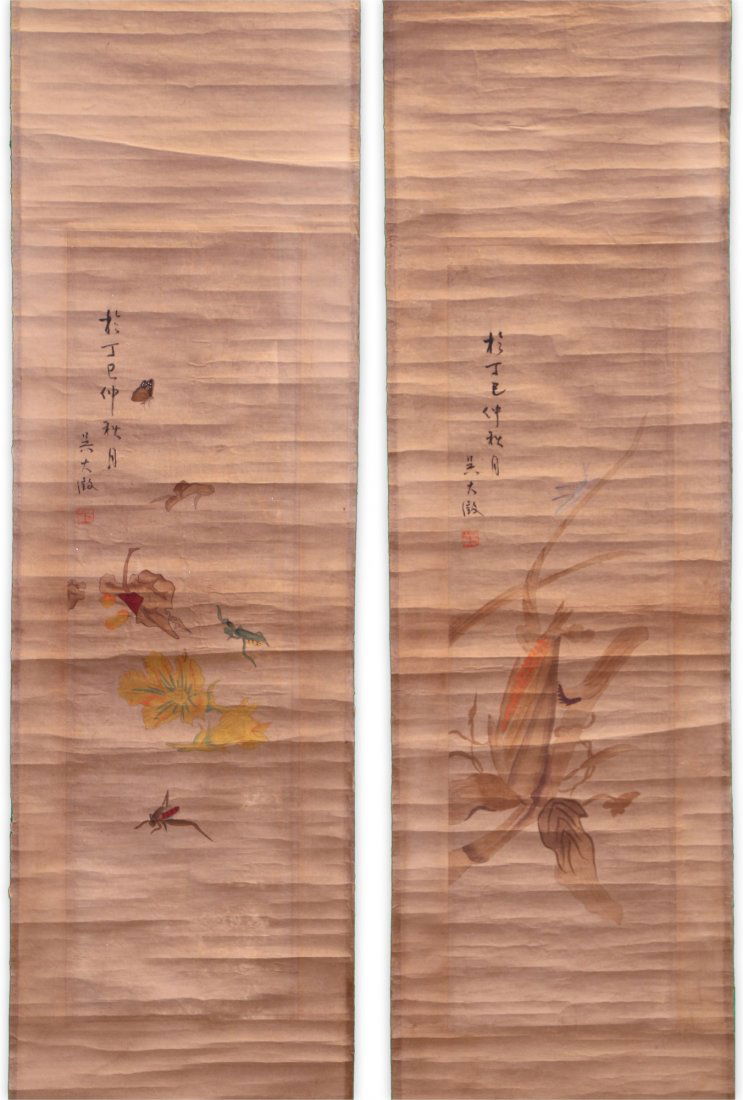 於丁巳仲秋月
吴大澂
於丁巳仲秋月
吴大澂